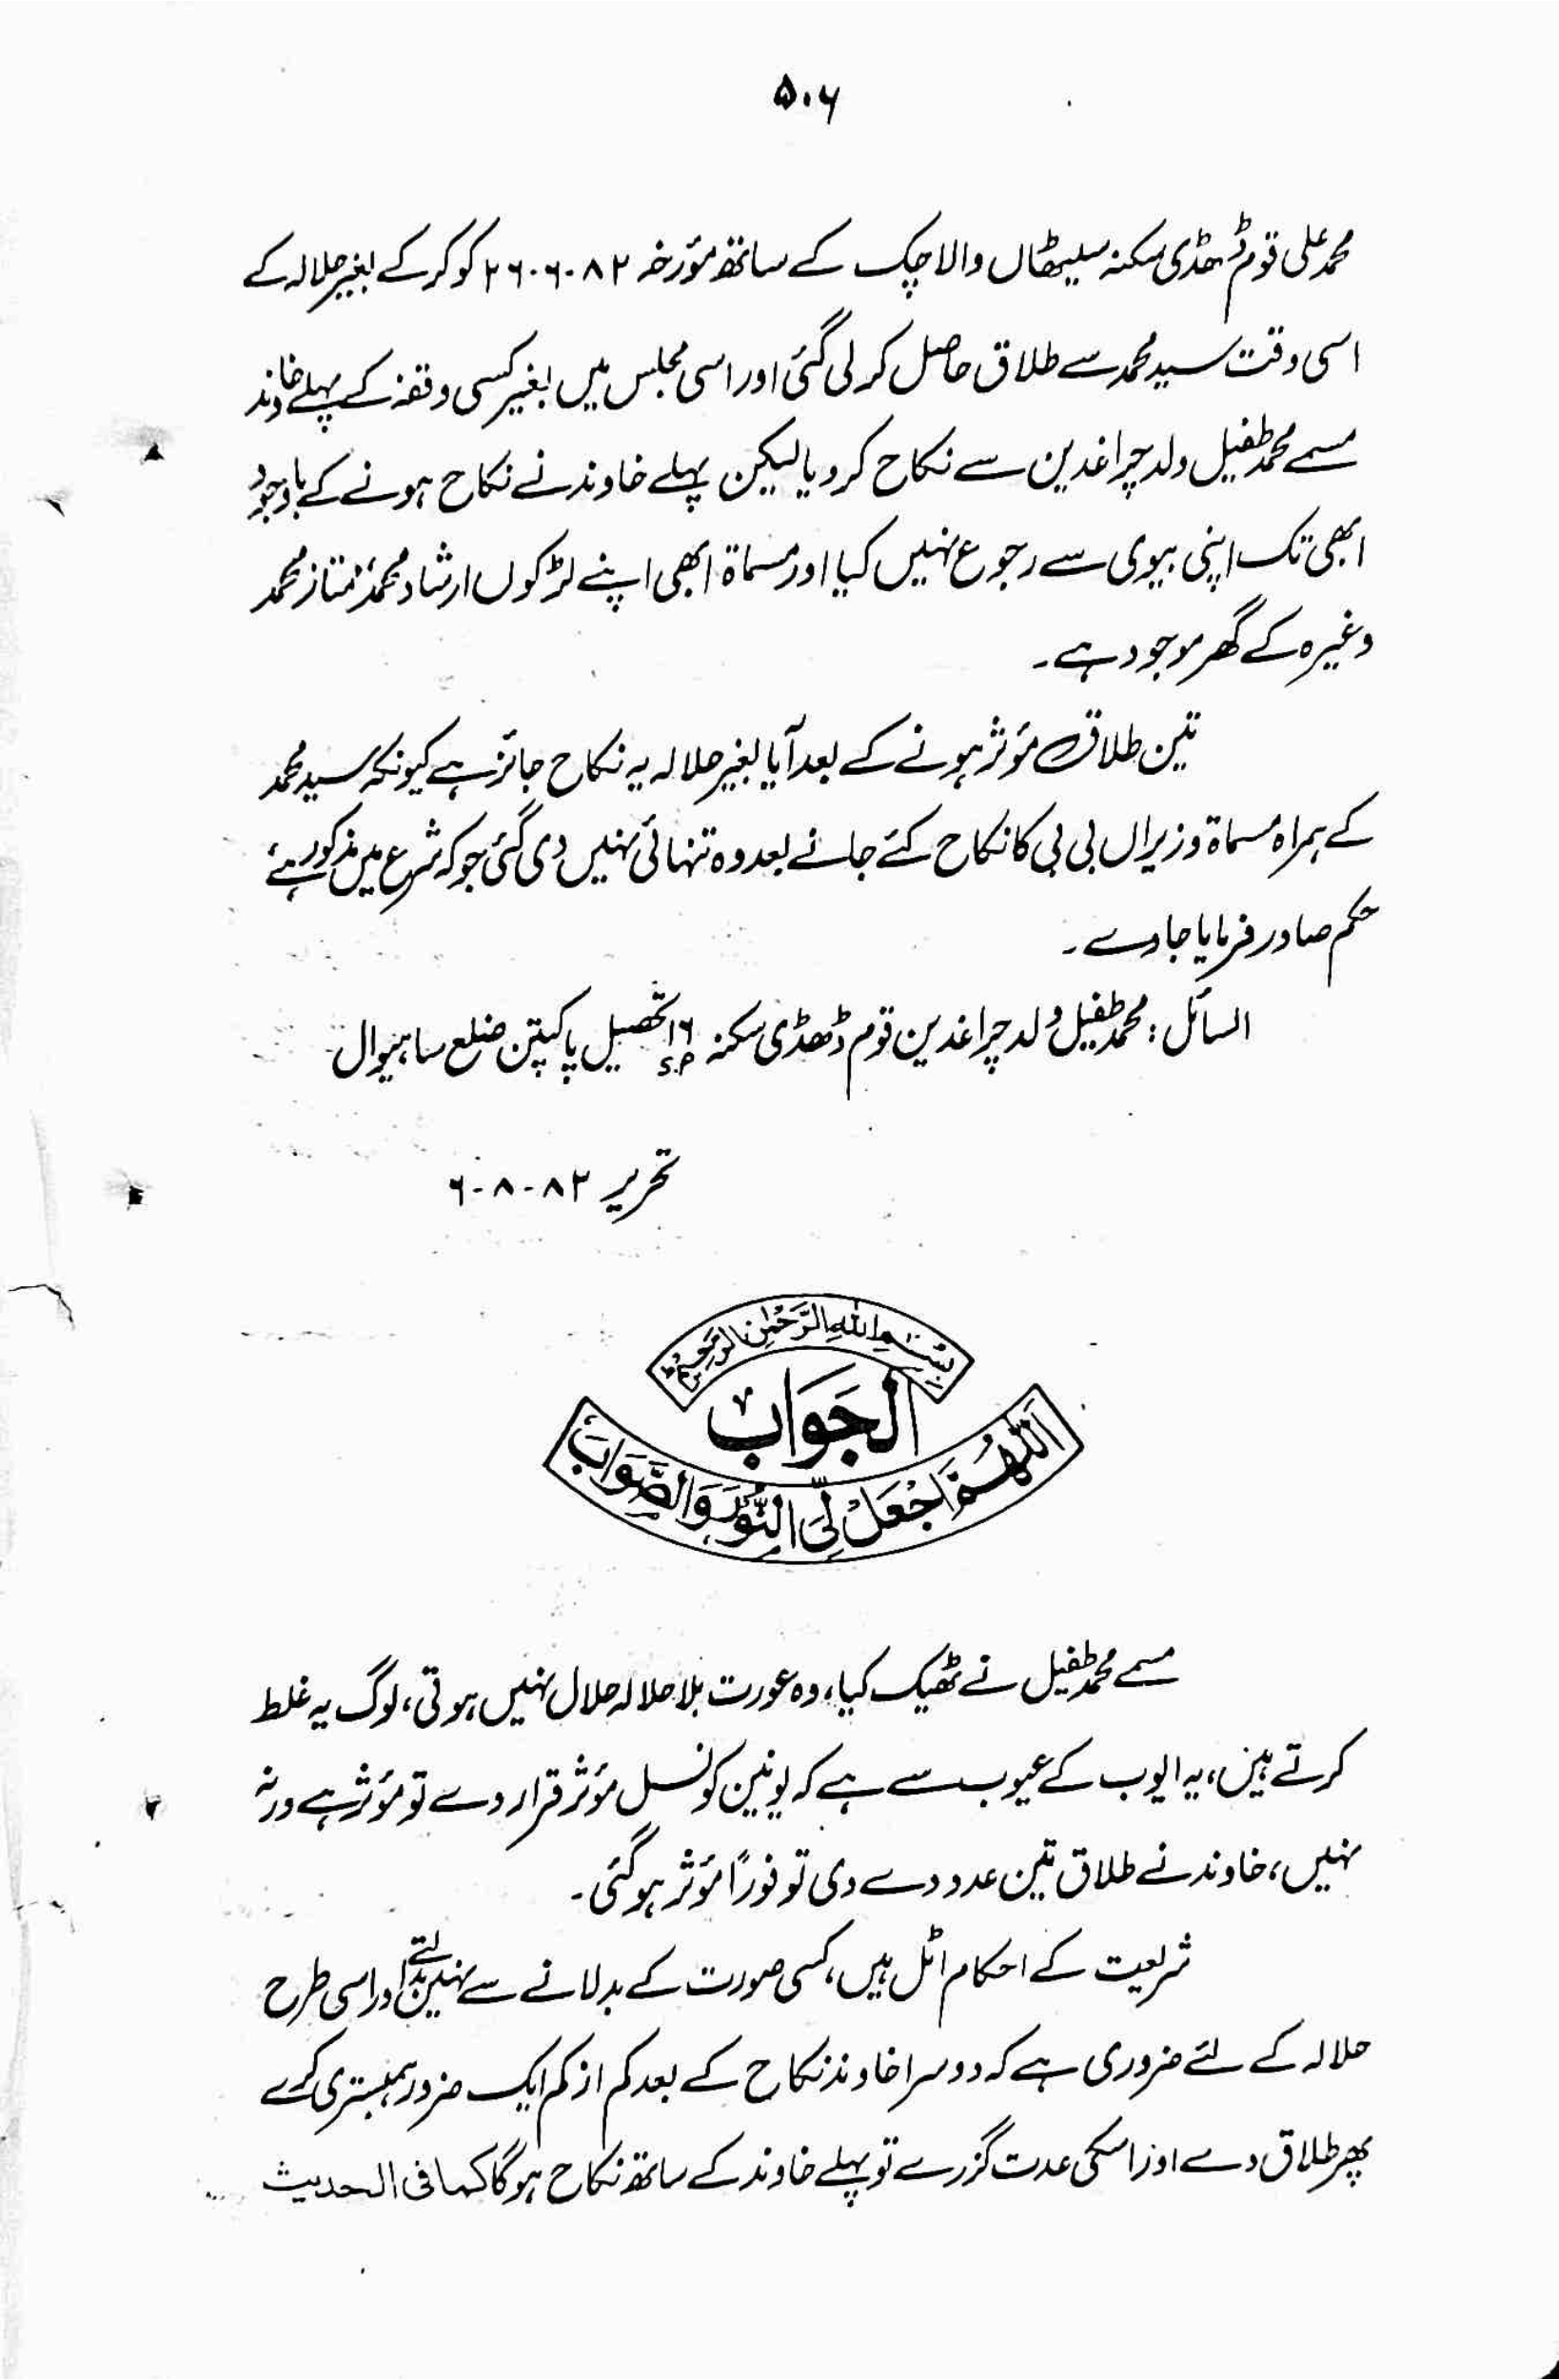 ۵۰۶
محمد علی قوم ڈھڈی سکنہ سیٹھاں والا چک کے ساتھ مؤرخہ ۸۲-۶-۲۶ کو کر کے بغیر حلالہ کے
اسی وقت سید محمد سے طلاق حاصل کر لی گئی اور اسی مجلس میں بغیر کسی وقفہ کے پہلے خاوند
مسمے محمد طفیل ولد چراغدین سے نکاح کر دیا لیکن پہلے خاوند نے نکاح ہونے کے باوجود
ابھی تک اپنی بیوی سے رجوع نہیں کیا اور مسماۃ ابھی اپنے لڑکوں ارشاد محمد، ممتاز محمد
وغیرہ کے گھر موجود ہے۔
تین طلاق مؤثر ہونے کے بعد آیا بغیر حلالہ یہ نکاح جائز ہے کیونکہ سید محمد
کے ہمراہ مسماۃ وزیراں بی بی کا نکاح کئے جانے بعد وہ تنہائی نہیں دی گئی جو کہ شرع میں مذکور ہے،
حکم صادر فرمایا جاوے۔
السائل: محمد طفیل ولد چراغدین قوم ڈھڈی سکنہ ۱۶ S.P تحصیل پاکپتن ضلع ساہیوال
تحریر ۸۲-۸-۶
بِسْمِ اللهِ الرَّحْمٰنِ الرَّحِيْمِ
الجَوَابُ
اَللّٰهُمَّ اجْعَلْ لِّيَ النُّوْرَ وَالصَّوَابَ
مسمے محمد طفیل نے ٹھیک کیا، وہ عورت بلا حلالہ حلال نہیں ہوتی، لوگ یہ غلط
کرتے ہیں، یہ ایوب کے عیوب سے ہے کہ یونین کونسل مؤثر قرار دے تو مؤثر ہے ورنہ
نہیں، خاوند نے طلاق تین عدد دے دی تو فوراً مؤثر ہو گئی۔
شریعت کے احکام اٹل ہیں، کسی صورت کے بدلانے سے نہیں بدلتے اور اسی طرح
حلالہ کے لئے ضروری ہے کہ دوسرا خاوند نکاح کے بعد کم از کم ایک ضرور ہمبستری کرے
پھر طلاق دے اور اسکی عدت گزرے تو پہلے خاوند کے ساتھ نکاح ہو گا کما فی الحدیث